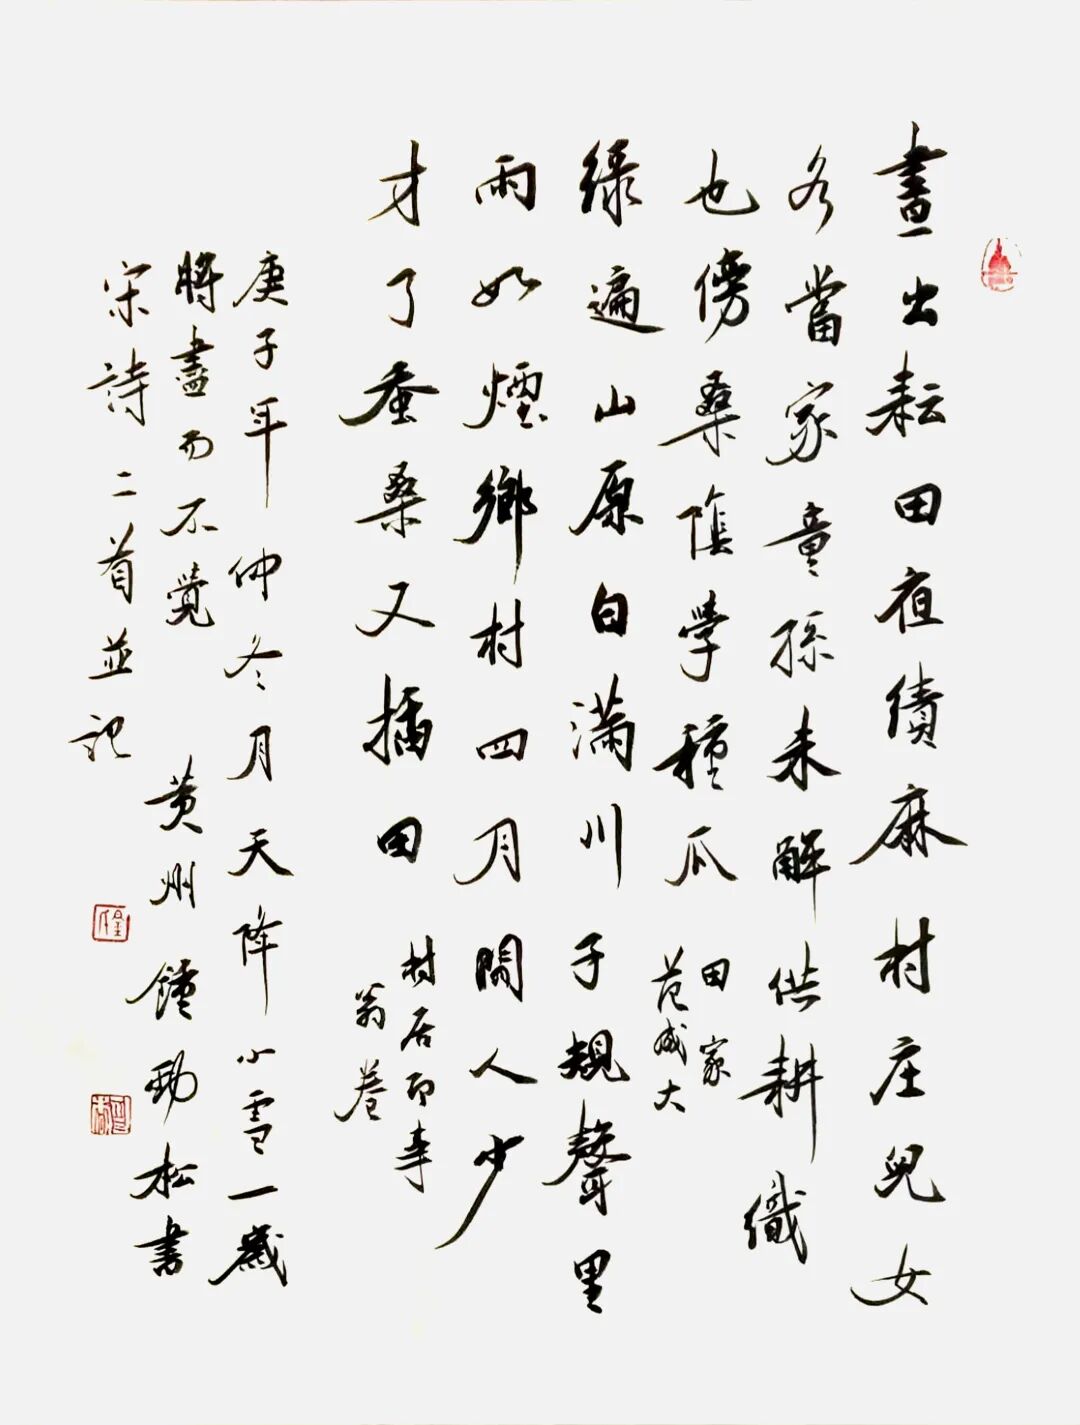 晝出耘田夜績麻村庄兒女
各當家童孫未解供耕織
也傍桑陰學種瓜
田家
范成大
緑遍山原白滿川子規聲里
雨如煙鄉村四月閑人少
才了蚕桑又插田
村居即事
翁卷
庚子年仲冬月天降小雪一歲
將盡而不覺
宋詩二首並記
黄州鍾勁松書